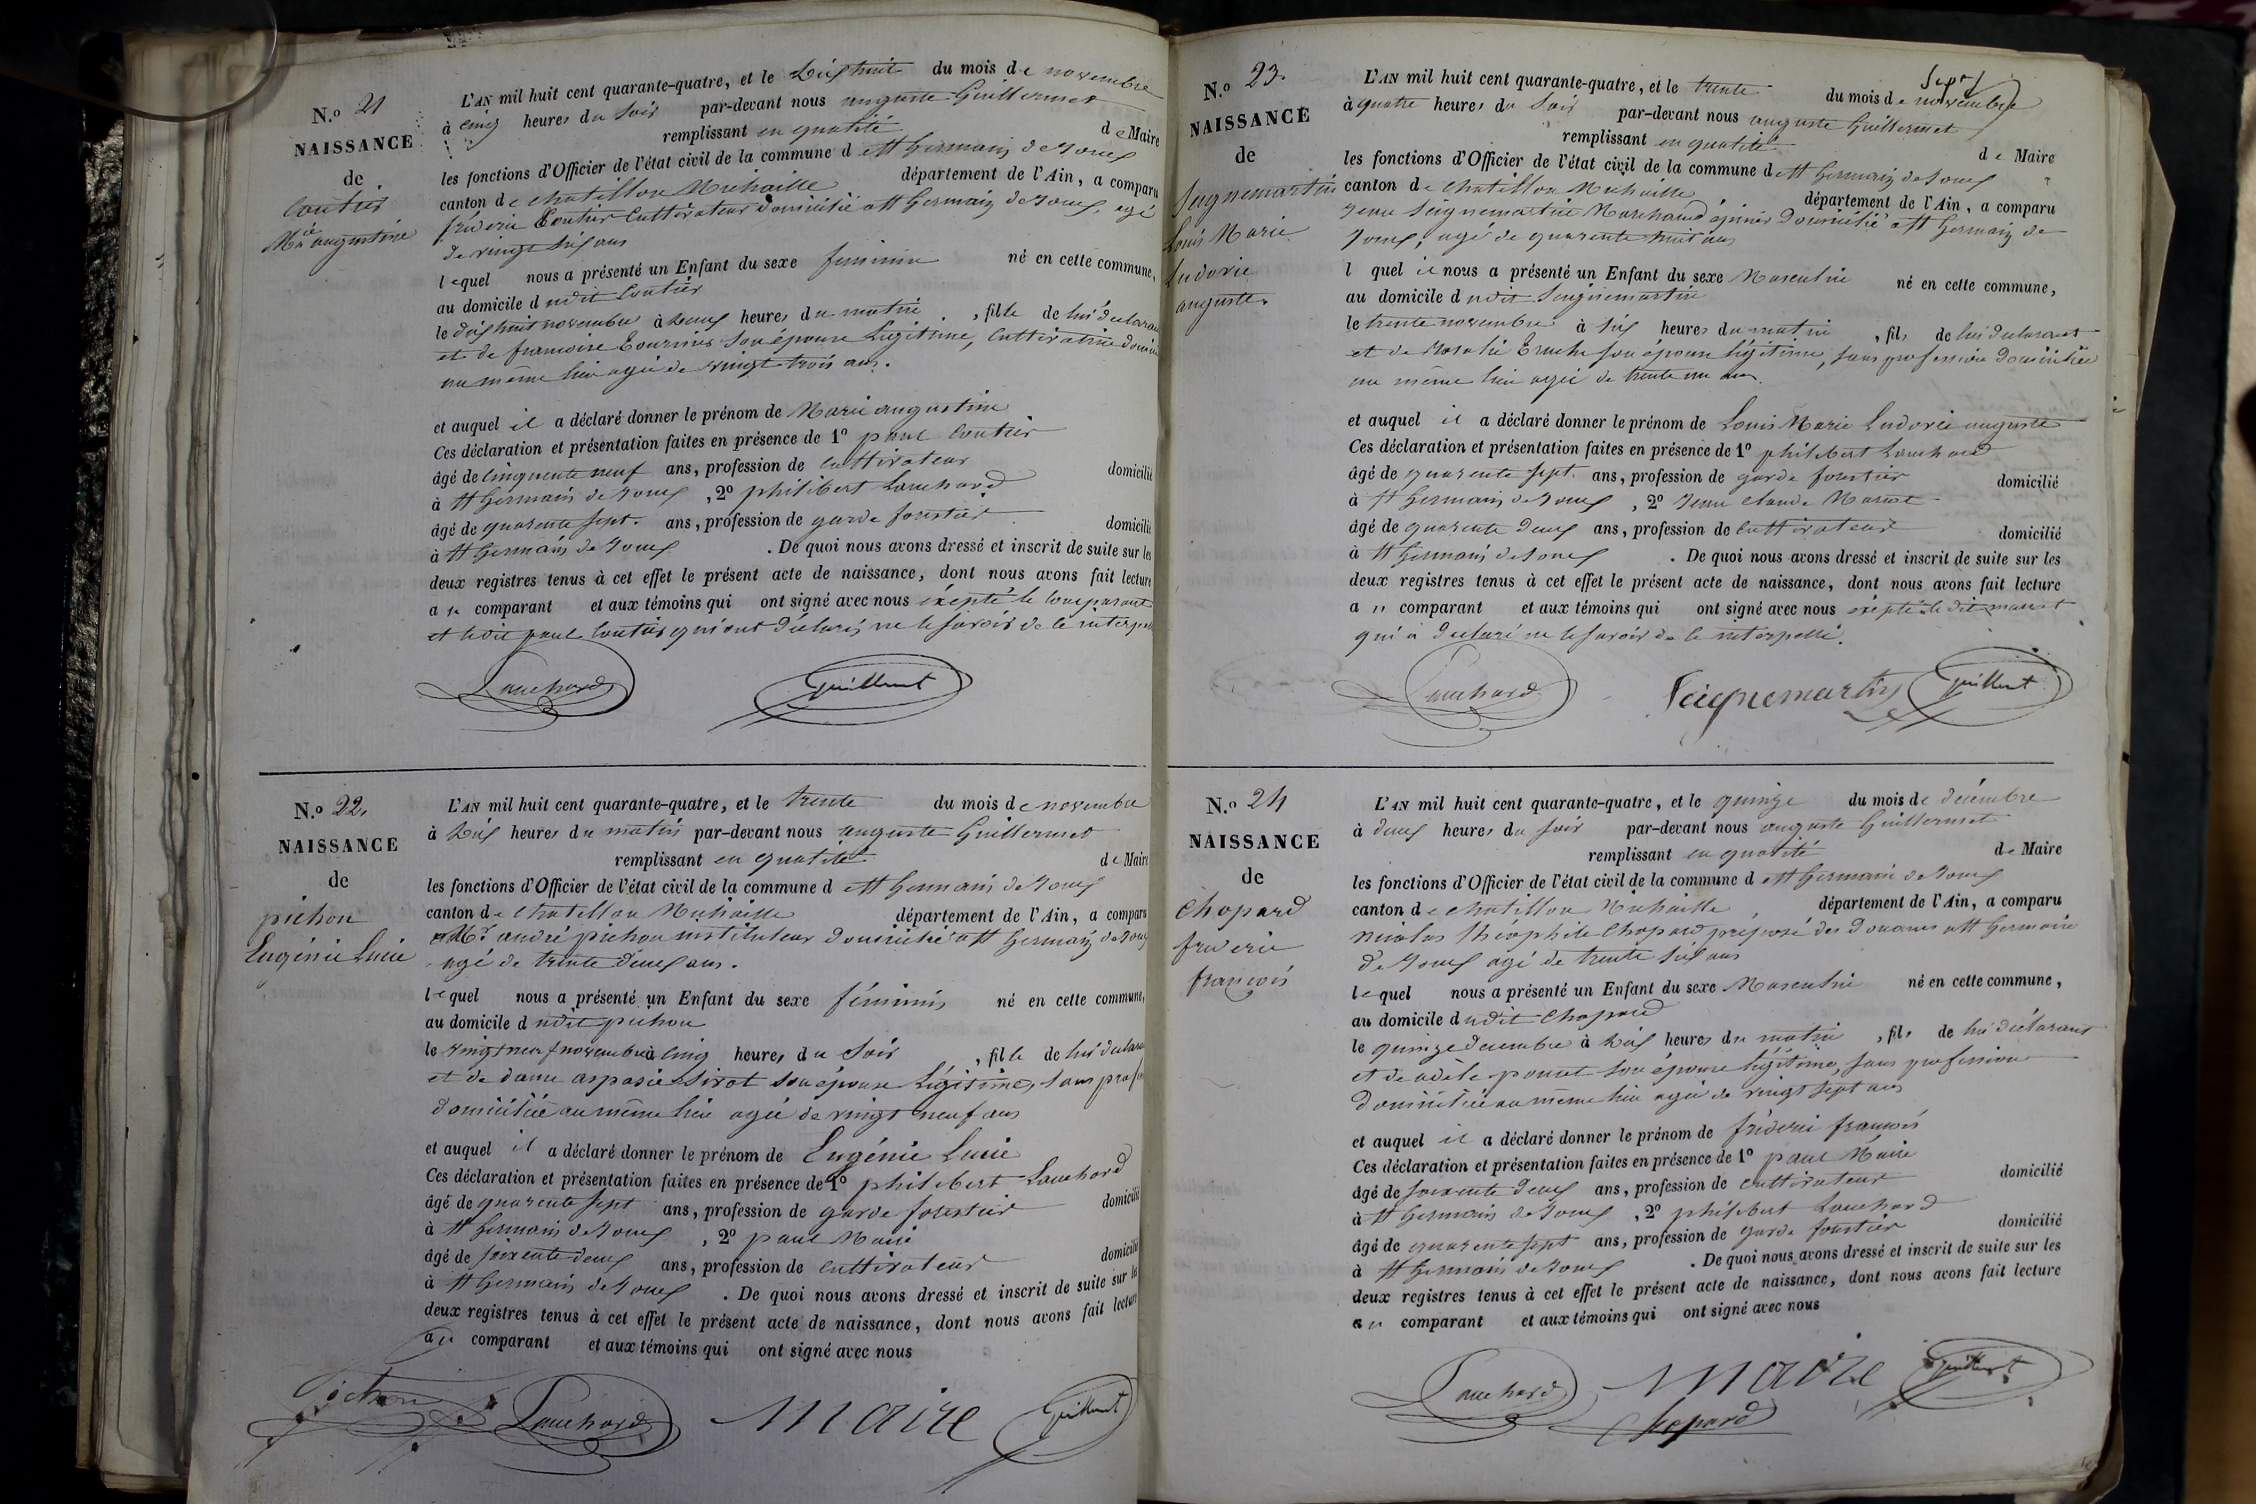 N.º 21
NAISSANCE
de
Coutier
Mie augustine
L'AN mil huit cent quarante-quatre, et le dix huit du mois de novembre
à cinq heures du soir par-devant nous auguste Guillermet
remplissant en qualité de Maire
les fonctions d'Officier de l'état civil de la commune de St Germain de Joux
canton de Chatillon Michaille département de l'Ain, a comparu
fréderic Coutier Cultivateur domicilié a St Germain de Joux, agé
de vingt six ans
lequel nous a présenté un Enfant du sexe féminin né en cette commune,
au domicile dudit Coutier
le dix huit novembre à deux heures du matin, fille de lui déclarant
et de francoise son épouse Légitime, Cultivatrice
au même lieu agée de vingt trois ans.
et auquel il a déclaré donner le prénom de Marie augustine
Ces déclaration et présentation faites en présence de 1º paul Coutier
âgé de Cinquente neuf ans, profession de Cultivateur domicilié
à St Germain de Joux, 2º philibert Louchard
âgé de quarente sept. ans, profession de garde forestier domicilié
à St Germain de Joux. De quoi nous avons dressé et inscrit de suite sur les
deux registres tenus à cet effet le présent acte de naissance, dont nous avons fait lecture
au comparant et aux témoins qui ont signé avec nous éxepté le Comparant
et ledit paul Coutier qui ont déclaré ne le savoir de ce
Louchard Guillermet
N.º 22.
NAISSANCE
de
pichon
Eugénie Lucie
L'AN mil huit cent quarante-quatre, et le trente du mois de novembre
à dix heures du matin par-devant nous auguste Guillermet
remplissant en qualité de Maire
les fonctions d'Officier de l'état civil de la commune de St Germain de Joux
canton de Chatillon Michaille département de l'Ain, a comparu
Mr andré pichon instituteur domicilié a St Germain de Joux
agé de trente deux ans.
lequel nous a présenté un Enfant du sexe féminin né en cette commune,
au domicile dudit pichon
le vingt neuf novembre à cinq heures du soir, fille de lui déclarant
et de dame aspasie Sirot son épouse Légitime, sans
domiciliée au même lieu agée de vingt neuf ans
et auquel il a déclaré donner le prénom de Eugénie Lucie
Ces déclaration et présentation faites en présence de 1º philibert Louchard
âgé de quarente sept ans, profession de garde forestier domicilié
à St Germain de Joux, 2º paul Maire
âgé de soixente deux ans, profession de Cultivateur domicilié
à St Germain de Joux. De quoi nous avons dressé et inscrit de suite sur les
deux registres tenus à cet effet le présent acte de naissance, dont nous avons fait lecture
au comparant et aux témoins qui ont signé avec nous
Pichon Louchard Maire Guillermet
N.º 23.
NAISSANCE
de
Seignemartin
Louis Marie
Ludovic
auguste.
L'AN mil huit cent quarante-quatre, et le trente du mois de novembre
à quatre heures du soir par-devant nous auguste Guillermet
remplissant en qualité de Maire
les fonctions d'Officier de l'état civil de la commune de St Germain de Joux
canton de Chatillon Michaille département de l'Ain, a comparu
Jean Seignemartin Marchand épicier Domicilié a St Germain de
Joux, agé de quarente huit ans
lquel il nous a présenté un Enfant du sexe Masculin né en cette commune,
au domicile dudit Seignemartin
le trente novembre à six heures du matin, fils de lui déclarant
et de Rosalie son épouse légitime, sans profession domiciliée
au même lieu agée de trente un ans.
et auquel il a déclaré donner le prénom de Louis Marie Ludovic auguste
Ces déclaration et présentation faites en présence de 1º philibert Louchard
âgé de quarente sept. ans, profession de garde forestier domicilié
à St Germain de Joux, 2º Jean Claude
âgé de quarente deux ans, profession de Cultivateur domicilié
à St Germain de Joux. De quoi nous avons dressé et inscrit de suite sur les
deux registres tenus à cet effet le présent acte de naissance, dont nous avons fait lecture
au comparant et aux témoins qui ont signé avec nous éxepté le dit
qui a déclaré ne le savoir de ce interpellé.
Louchard Seignemartin Guillermet
N.º 24
NAISSANCE
de
Chopard
fréderic
françois
L'AN mil huit cent quarante-quatre, et le quinze du mois de décembre
à deux heures du soir par-devant nous auguste Guillermet
remplissant en qualité de Maire
les fonctions d'Officier de l'état civil de la commune de St Germain de Joux
canton de Chatillon Michaille, département de l'Ain, a comparu
Nicolas Théophile Chopard préposé des Douanes a St Germain
de Joux agé de trente six ans
lequel nous a présenté un Enfant du sexe Masculin né en cette commune,
au domicile dudit Chopard
le quinze décembre à dix heures du matin, fils de lui déclarant
et de adèle son épouse légitime, sans profession
domiciliée au même lieu agée de vingt sept ans
et auquel il a déclaré donner le prénom de fréderic françois
Ces déclaration et présentation faites en présence de 1º paul Maire
âgé de soixente deux ans, profession de Cultivateur domicilié
à St Germain de Joux, 2º philibert Louchard
âgé de quarente sept ans, profession de garde forestier domicilié
à St Germain de Joux. De quoi nous avons dressé et inscrit de suite sur les
deux registres tenus à cet effet le présent acte de naissance, dont nous avons fait lecture
au comparant et aux témoins qui ont signé avec nous
Louchard Maire Guillermet
Chopard